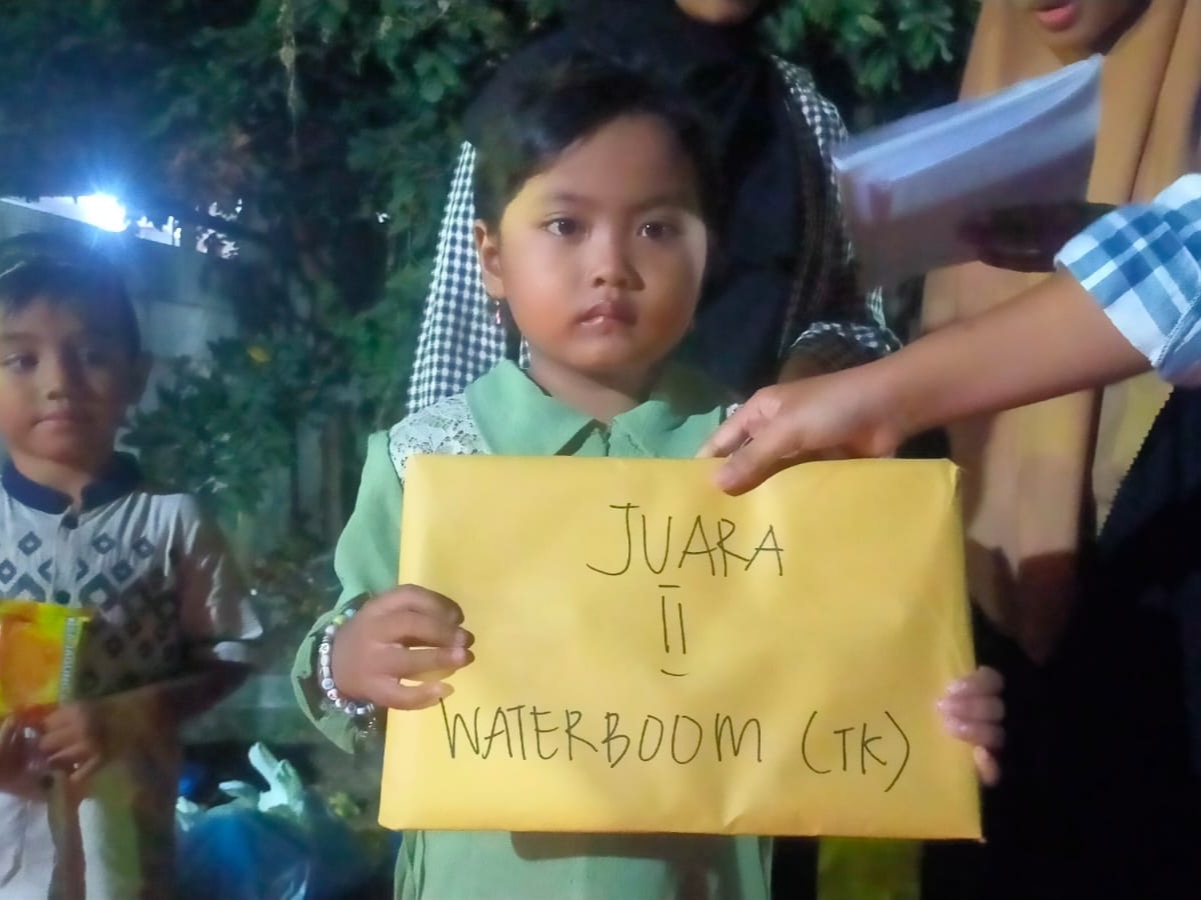 JUARA
II
WATERBOOM (TK)